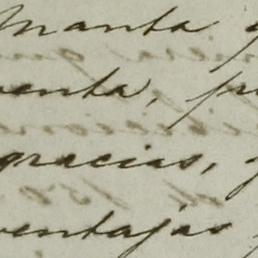 manta
venta,
gracias,
ventajas